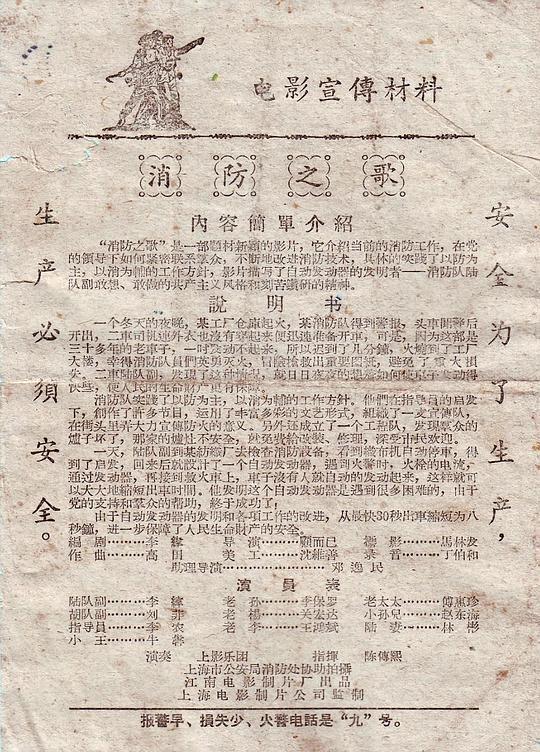 电影宣傳材料
消防之歌
內容簡單介紹
“消防之歌”是一部題材新穎的影片，它介紹当前的消防工作，在党
的領导下如何紧密联系羣众，不断地改进消防技术，具体的实踐了以防为
主，以消为輔的工作方針，影片描写了自动发动器的发明者——消防队陆
队副敢想、敢做的共产主义风格和刻苦鑽研的精神。
說明书
一个冬天的夜晚，某工厂仓庫起火，某消防队得到警报，头車開警后
开出，二車司机連外衣也沒有穿起来便迅速准备开車，可是，因为这部是
三十多年的老車子，一时发动不起来，所以迟到了几分鐘，火燒到了工厂
大楼，幸得消防队員們英勇灭火，冒險搶救出重要图紙，避免了重大損
失。二車陆队副，发現了这种情况，成日日夜夜的想着如何使車子发动得
快些，使人民的生命財产更有保障。
消防队实踐了以防为主，以消为輔的工作方針。他們在指导員的启发
下，創作了許多节目，运用了丰富多彩的文艺形式，組織了一支宣傳队，
在街头里弄大力宣傳防火的意义。另外还成立了一个工程队，发現羣众的
爐子坏了，那家的爐灶不安全，就免費給改裝、修理，深受市民欢迎。
一天，陆队副到某紡織厂去檢查消防設备，看到織布机自动停車，得
到了启发，回来后就設計了一个自动发动器，遇到火警时，火栓的电流，
通过发动器，再接到救火車上，車子沒有人就自动的发动起来，这样就可
以大大地縮短出車时間。他发明这个自动发动器是遇到很多困难的，由于
党的支持和羣众的帮助，終于成功了！
由于自动发动器的发明和各項工作的改进，从最快30秒出車縮短为八
秒鐘，进一步保障了人民生命財产的安全。
編剧………李緯　导演………顧而已　攝影………馬林发
作曲………高田　美工………沈維善　录音………丁伯和
助理导演………………邓逸民
演員表
陆队副………李緯　老孙………李保罗　老太太………傅惠珍
胡队副………刘非　老楊………关宏达　小孙兒………赵东海
指导員………李农　老李………王鴻斌　陆妻………林彬
小王………牛犇
演奏　上影乐团　指揮　陈傳熙
上海市公安局消防处协助拍攝
江南电影制片厂出品
上海电影制片公司監制
报警早、損失少、火警电話是“九”号。
生产必須安全。
安全为了生产，